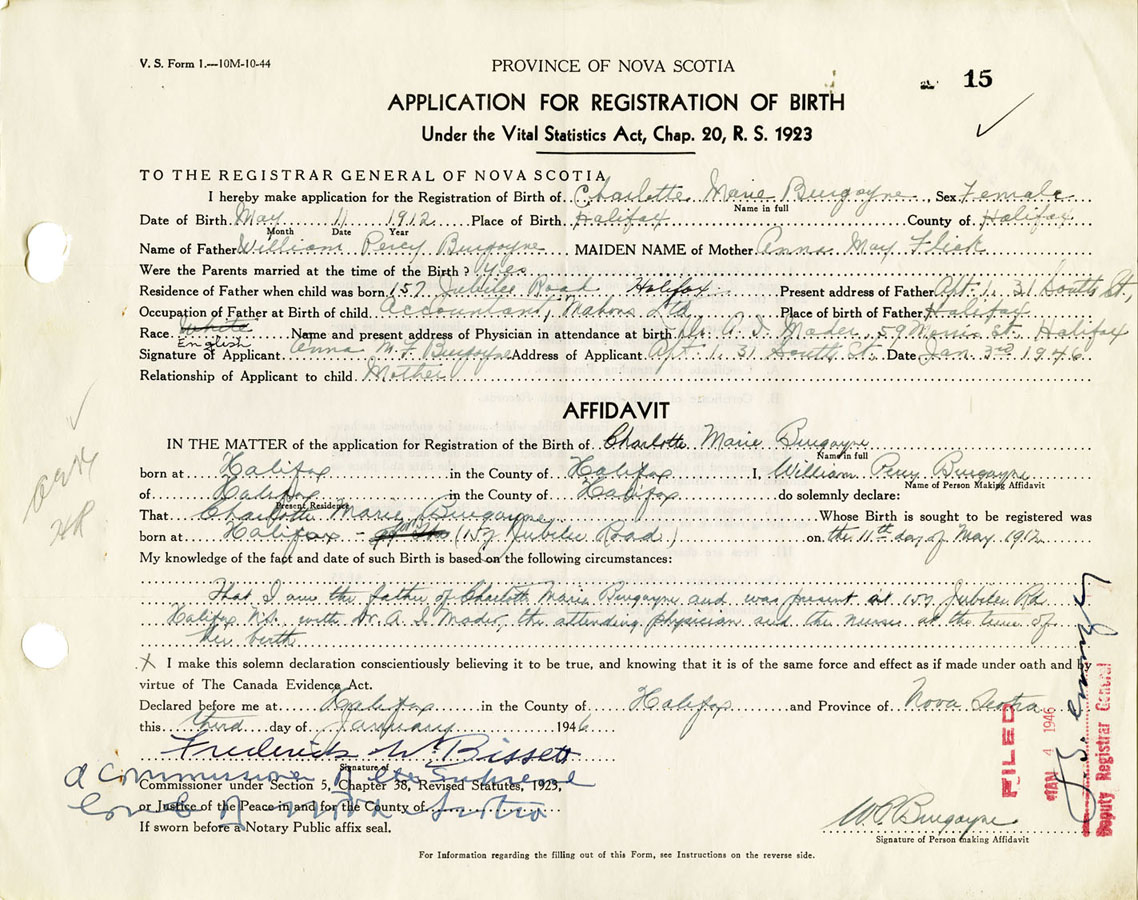 V. S. Form 1.—10M-10-44
PROVINCE OF NOVA SCOTIA
15
APPLICATION FOR REGISTRATION OF BIRTH
Under the Vital Statistics Act, Chap. 20, R. S. 1923
TO THE REGISTRAR GENERAL OF NOVA SCOTIA
I hereby make application for the Registration of Birth of Charlotte Marie Burgoyne, Sex Female
Name in full
Date of Birth May 11 1912 Place of Birth Halifax County of Halifax
Month Date Year
Name of Father William Percy Burgoyne MAIDEN NAME of Mother Anna May Flick
Were the Parents married at the time of the Birth? Yes
Residence of Father when child was born 157 Jubilee Road Halifax Present address of Father Apt. 1, 31 South St.,
Occupation of Father at Birth of child Accountant, Mahons Ltd. Place of birth of Father Halifax
Race White Name and present address of Physician in attendance at birth Dr. A. I. Mader, 59 Morris St. Halifax
English
Signature of Applicant Anna M. F. Burgoyne Address of Applicant Apt. 1, 31 South St. Date Jan 3rd 1946
Relationship of Applicant to child Mother
AFFIDAVIT
IN THE MATTER of the application for Registration of the Birth of Charlotte Marie Burgoyne
Name in full
born at Halifax in the County of Halifax I, William Percy Burgoyne
Name of Person Making Affidavit
of Halifax in the County of Halifax do solemnly declare:
Present Residence
That Charlotte Marie Burgoyne Whose Birth is sought to be registered was
born at Halifax - (157 Jubilee Road) on the 11th day of May 1912
My knowledge of the fact and date of such Birth is based on the following circumstances:
That I am the father of Charlotte Marie Burgoyne and was present at 157 Jubilee Rd.
Halifax N.S. with Dr. A. I. Mader, the attending physician and the nurse at the time of
her birth
X I make this solemn declaration conscientiously believing it to be true, and knowing that it is of the same force and effect as if made under oath and by
virtue of The Canada Evidence Act.
Declared before me at Halifax in the County of Halifax and Province of Nova Scotia
this third day of January 1946
Frederick W. Bissett
Signature of
A Commissioner of the Supreme
Commissioner under Section 5, Chapter 38, Revised Statutes, 1923,
Court of Nova Scotia
or Justice of the Peace in and for the County of
If sworn before a Notary Public affix seal.
W. P. Burgoyne
Signature of Person making Affidavit
For Information regarding the filling out of this Form, see Instructions on the reverse side.
FILED
JAN 4 1946
Deputy Registrar General